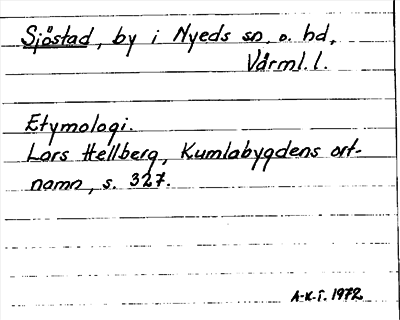 Sjöstad, by i Nyeds sn o. hd,
Värml. l.
Etymologi.
Lars Hellberg, Kumlabygdens ort-
namn, s. 327.
A-K.T. 1972